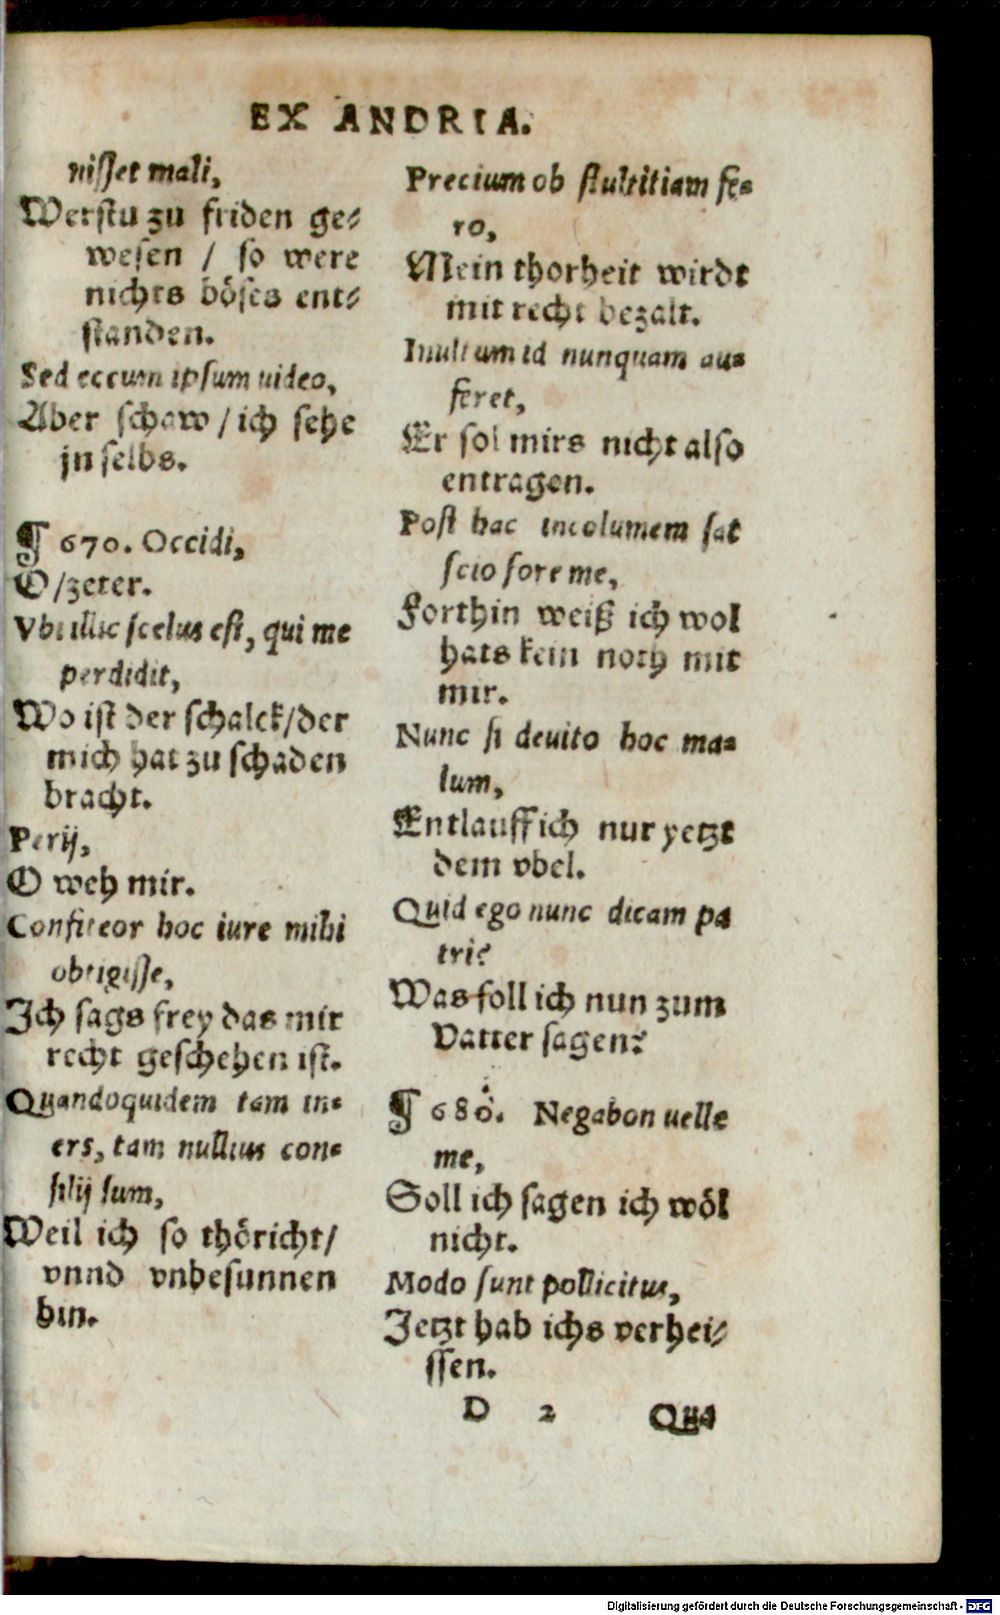 EX ANDRIA.
nisset mali,
Werstu zu friden ge⸗
wesen / so were
nichts böses ent⸗
standen.
Sed eccum ipsum uideo,
Aber schaw / ich sehe
jn selbs.
¶ 670. Occidi,
O/zeter.
Vbi illic scelus est, qui me
perdidit,
Wo ist der schalck/der
mich hat zu schaden
bracht.
Perij,
O weh mir.
Confiteor hoc iure mihi
obtigisse,
Ich sags frey das mir
recht geschehen ist.
Quandoquidem tam in=
ers, tam nullius con=
silij sum,
Weil ich so thöricht/
vnnd vnbesunnen
bin.
Precium ob stultitiam fe=
ro,
Mein thorheit wirdt
mit recht bezalt.
Inultum id nunquam au=
feret,
Er sol mirs nicht also
entragen.
Post hac incolumem sat
scio fore me,
Forthin weiß ich wol
hats kein noth mit
mir.
Nunc si deuito hoc ma=
lum,
Entlauff ich nur yetzt
dem vbel.
Quid ego nunc dicam pa
tri?
Was soll ich nun zum
Vatter sagen?
¶ 680. Negabon uelle
me,
Soll ich sagen ich wöl
nicht.
Modo sunt pollicitus,
Jetzt hab ichs verhei⸗
ssen.
D 2 Qua
Digitalisierung gefördert durch die Deutsche Forschungsgemeinschaft - DFG